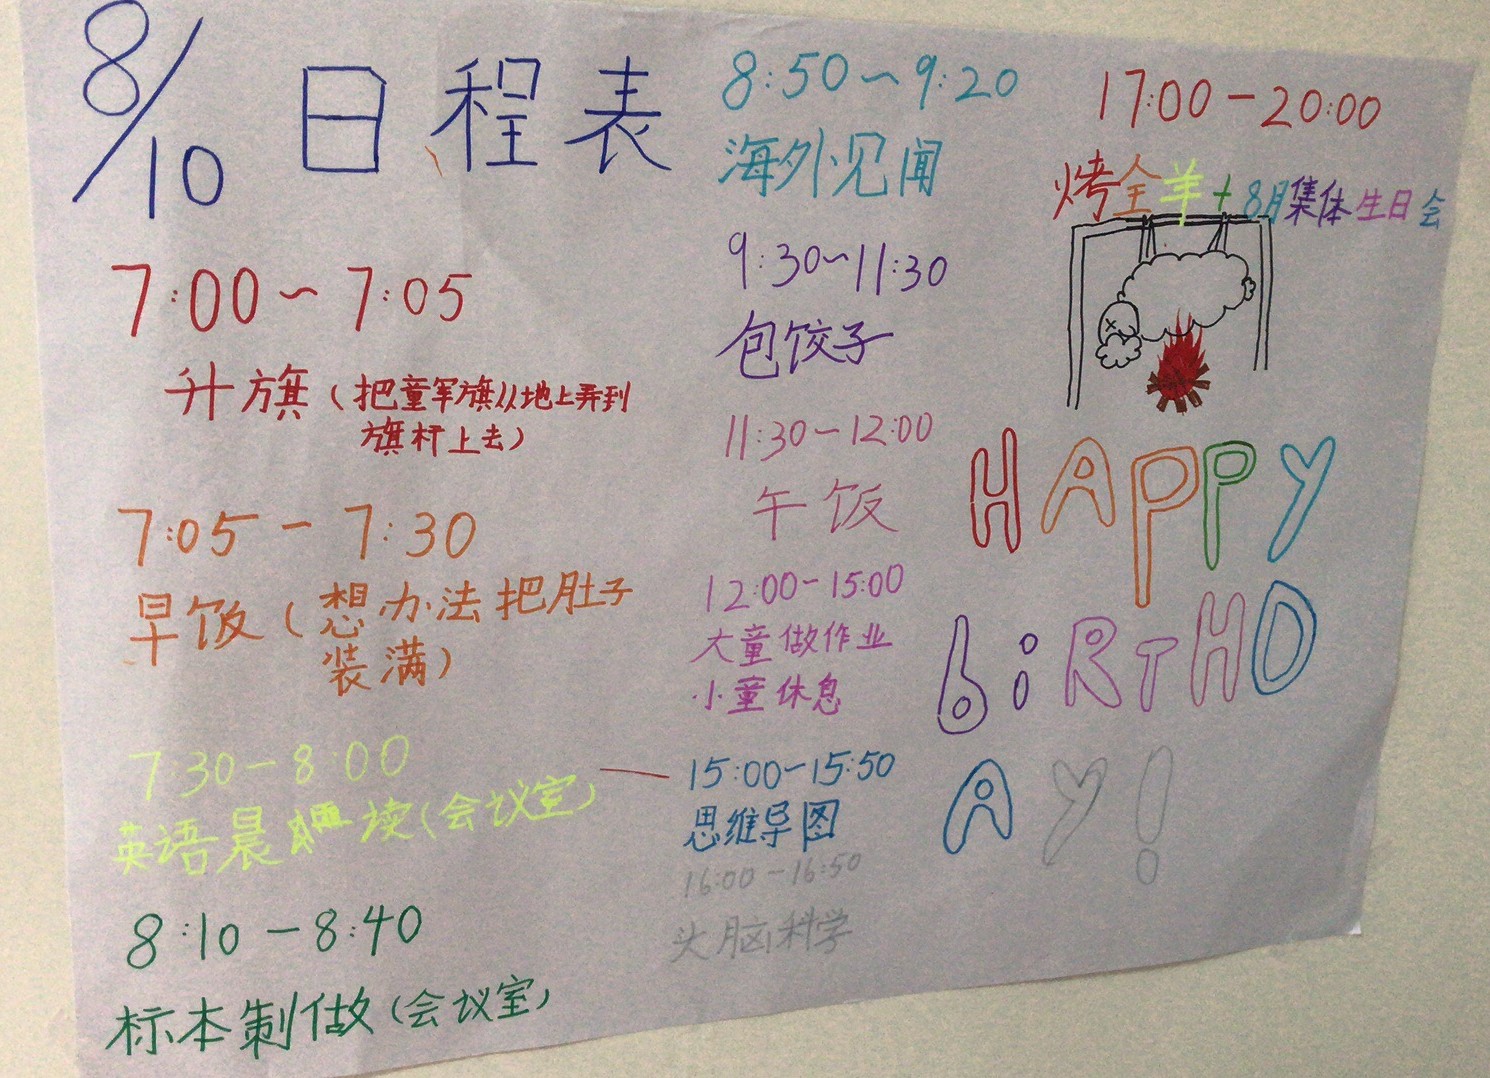 8/10 日程表
7:00~7:05
升旗(把童军旗从地上弄到
旗杆上去)
7:05-7:30
早饭(想办法把肚子
装满)
7:30-8:00
英语晨读(会议室)
8:10-8:40
标本制做(会议室)
8:50~9:20
海外见闻
9:30~11:30
包饺子
11:30-12:00
午饭
12:00-15:00
大童做作业
小童休息
15:00-15:50
思维导图
16:00-16:50
头脑科学
17:00-20:00
烤全羊+8月集体生日会
HAPPY
biRTHD
Ay!